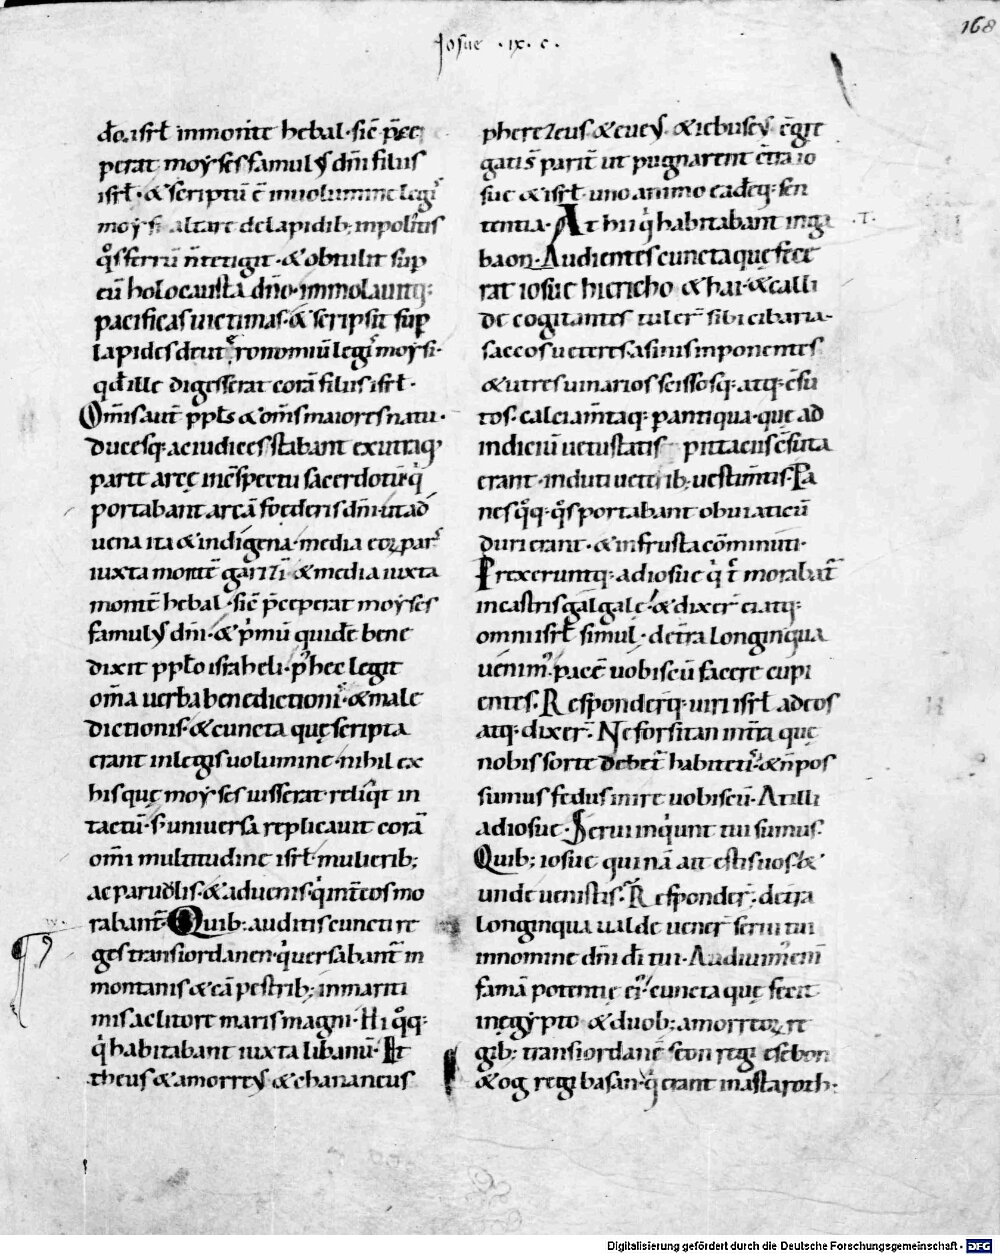 168
Josue · ix · c ·
do. isrł inmonte hebal · sic̄ p̄ce
perat moyses famulus dn̄i filiis
isrł · & scriptū ē inuolumine legis
moysi altare delapidib; inpolitis
q̊s ferrū n̄ tetigit · & obtulit sup
eū holocausta dn̄o · immolauitq;
pacificas uictimas · & scripsit sup
lapides deuteronomiū legis moysi ·
qđ ille digesserat corā filiis isrł ·
Om̄is aut̄ ppłs & om̄s maiores natu ·
ducesq; ac iudices stabant exutraq;
parte arcę inc̄spectu sacerdotū q̇
portabant arcā foederis dn̄i · ut ad
uena ita & indigena · media eoꝝ pars
iuxta montē garizī & media iuxta
montē hebal · sic̄ p̄ceperat moyses
famulus dn̄i · & ṗmū quidē bene
dixit ppło israheli · p̕ hec legit
om̄a uerba benedictionis · & male
dictionis · & cuncta quę scripta
erant inlegis uolumine · nihil ex
his quę moyses iusserat reliq̇t in
tactū · s; uniuersa replicauit corā
om̄i multitudine isrł mulierib;
ac paruulis · & aduenis q̇ int̄ eos mo
rabant̄ · Quib; auditis cuncti re
ges transiordanen · q̇ uersabant̄ in
montanis & cāpestrib; inmariti
mis ac litore maris magni · Hi q̊q;
q̇ habitabant iuxta libanū · &
theus & amorreus & chananeus
pherezeus & eueus · & iebuseus c̄gre
gati s̄ parit̄ ut pugnarent c̄tra io
sue & isrł · uno animo eadēq; sen
tentia · At hii q̇ habitabant inga · T ·
baon · Audientes cuncta quę fece
rat iosue hiericho & hai · & calli
de cogitantes tuler̄ sibi cibaria ·
saccos ueteres asinis imponentes
& utres uinarios scissosq; atq; c̄su
tos · calciam̄taq; perantiqua · quę ad
indiciū uetustatis pittaciis c̄suta
erant · induti ueterib; uestim̄tis · Pa
nes q̊q; q̊s portabant ob uiaticū
duri erant · & infrusta cōminuti ·
Prexeruntq; ad iosue q̇ t̄ morabat̄
incastris galgalę · & dixer̄ ei atq;
omni isrł simul · deterra longinqua
uenim̕ pacē uobiscū facere cupi
entes · Responder̄q; uiri isrł ad eos
atq; dixer̄ · Ne forsitan int̄ra quę
nobis sorte debet̄ habitetis · & n̄ pos
sumus fędus inire uobiscū · At illi
ad iosue · Serui inq̇unt tui sumus ·
Quib; iosue quinā ait estis uos · &
unde uenistis · Responder̄ · de terra
longinqua ualde uener̄ serui tui
innomine dn̄i dī tui · Audiuim̕ enī
famā potentię ei̕ · cuncta quę fecit
inęgypto & duob; amorreoꝝ re
gib; transiordanē seon regi esebon
& og regi basan · q̇ erant inastaroth ·
Digitalisierung gefördert durch die Deutsche Forschungsgemeinschaft - DFG